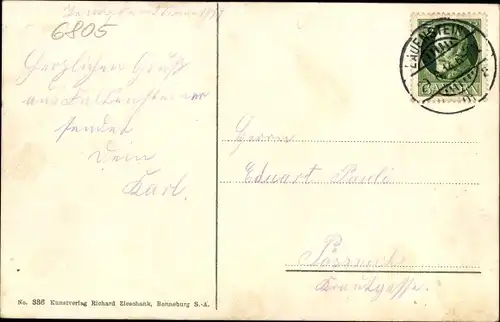 6805
Herzlichen Gruß
aus
sendet
Dein
Karl.
LAUENSTEIN
BAYERN
Herrn
Eduart Pauli
Pössneck
Krautgasse.
No. 336 Kunstverlag Richard Zieschank, Ronneburg S.-A.